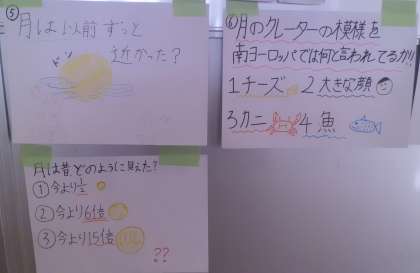 ⑤
月は以前ずっと
近かった?
ドン
⑥月のクレーターの模様を
南ヨーロッパでは何と言われてるか!!
1チーズ 2大きな顔
3カニ 4魚
月は昔どのように見えた?
①今より1/2
②今より6倍
③今より15倍
??